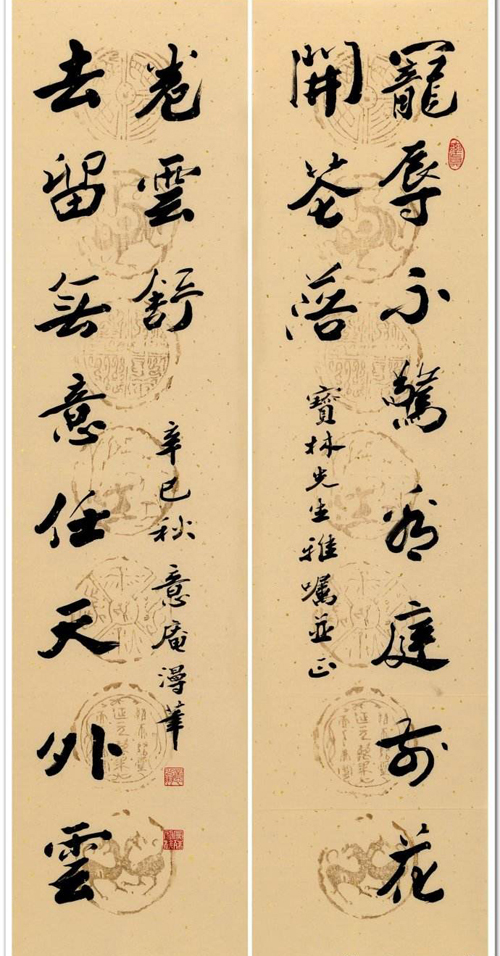 寵辱不驚看庭前花
開花落
寶林先生雅囑並正
去留無意任天外雲
卷雲舒
辛巳秋意庵漫筆